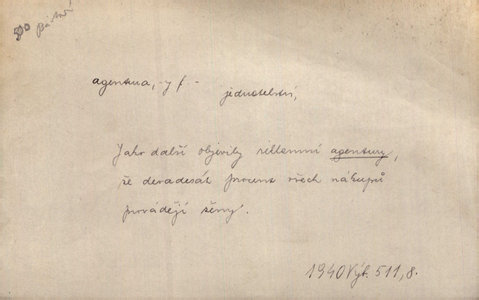 pátrá
agentura, -y f. -
jednatelství,
Jako další objevily reklamní agentury,
že devadesát procent všech nákupů
provádějí ženy.
1940 Výb. 511, 8.